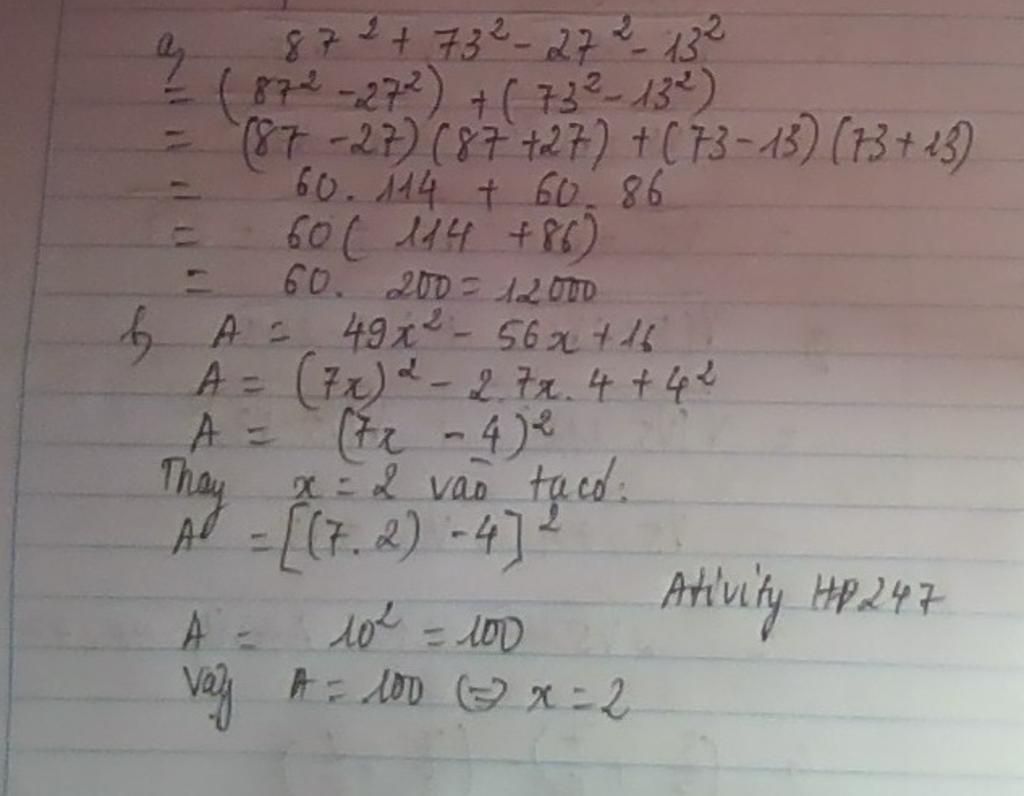 a, 87² + 73² - 27² - 13²
= (87² - 27²) + (73² - 13²)
= (87 - 27)(87 + 27) + (73 - 13)(73 + 13)
= 60. 114 + 60. 86
= 60( 114 + 86)
= 60. 200 = 12000
b, A = 49x² - 56x + 16
A = (7x)² - 2.7x.4 + 4²
A = (7x - 4)²
Thay x = 2 vào ta có:
A = [(7.2) - 4]²
Ativity HP247
A = 10² = 100
Vậy A = 100 <=> x = 2